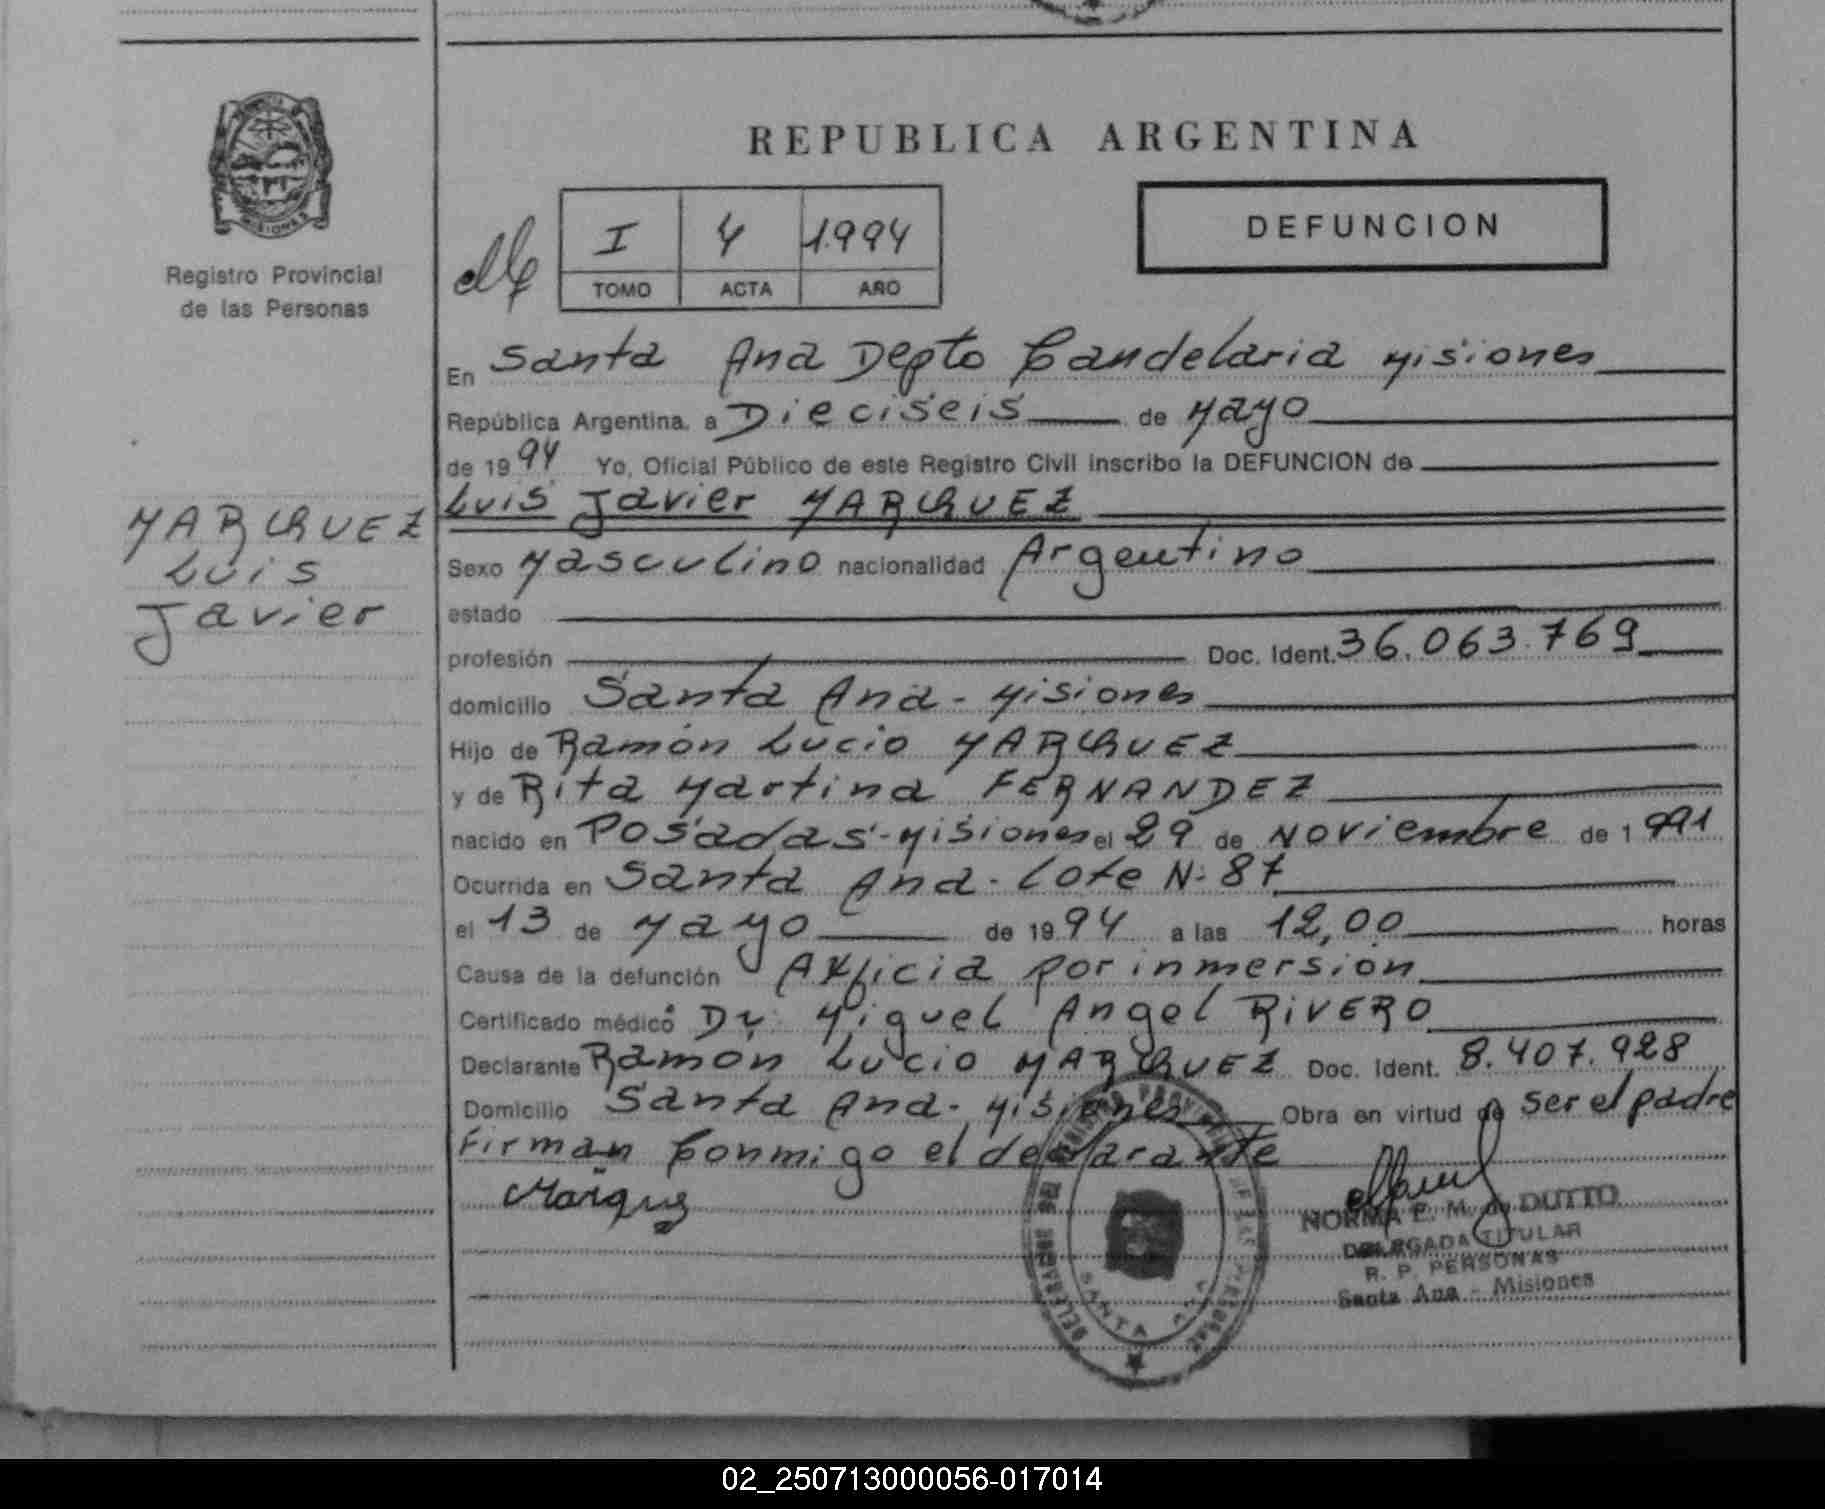 REPUBLICA ARGENTINA
MISIONES
Registro Provincial
de las Personas
I 4 1994
TOMO ACTA AÑO
DEFUNCION
En Santa Ana Depto Candelaria Misiones
República Argentina, a Dieciseis de Mayo
de 1994 Yo, Oficial Público de este Registro Civil inscribo la DEFUNCION de
MARQUEZ
Luis
Javier
Luis Javier MARQUEZ
Sexo Masculino nacionalidad Argentino
estado
profesión Doc. Ident. 36.063.769
domicilio Santa Ana - Misiones
Hijo de Ramón Lucio MARQUEZ
y de Rita Martina FERNANDEZ
nacido en Posadas - Misiones el 29 de Noviembre de 1991
Ocurrida en Santa Ana - Lote N: 87
el 13 de Mayo de 1994 a las 12,00 horas
Causa de la defunción Axficia por inmersion
Certificado médico Dr. Miguel Angel RIVERO
Declarante Ramón Lucio MARQUEZ Doc. Ident. 8.407.928
Domicilio Santa Ana - Misiones Obra en virtud de ser el padre
Firman Conmigo el declarante
NORMA E. M. de DUTTO
DELEGADA TITULAR
R. P. PERSONAS
Santa Ana - Misiones
SANTA ANA
02_250713000056-017014